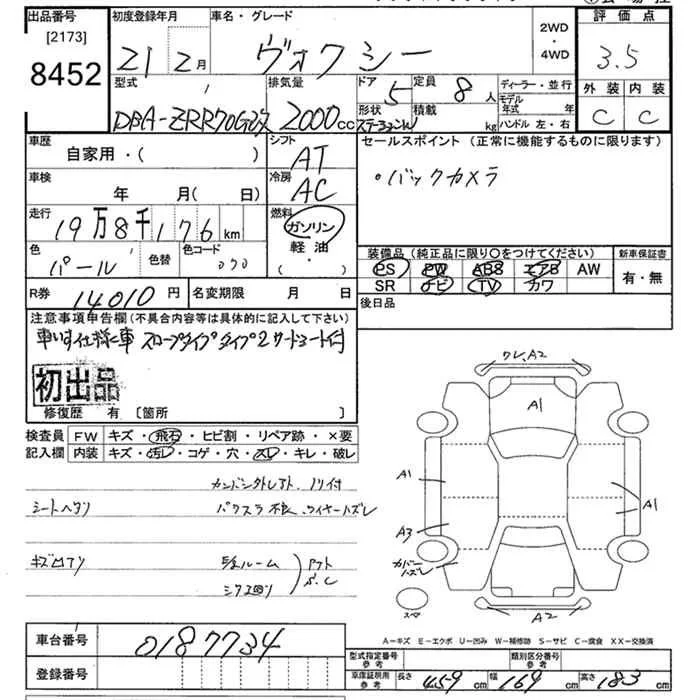 出品番号
[2173]
8452
初度登録年月
21 2月
車名・グレード
ヴォクシー
2WD
・
4WD
評価点
3.5
外装 内装
C C
型式
DBA-ZRR70G改
排気量
2000cc
ドア
5
定員
8人
形状
積載
kg
ディーラー・並行
モデル年式 年
ハンドル 左・右
車歴
自家用・( )
シフト
AT
セールスポイント (正常に機能するものに限ります)
・バックカメラ
車検
年 月( 日)
冷房
AC
走行
19万8千176km
燃料
ガソリン
軽油
( ・ )
色
パール
色替
色コード
070
装備品 (純正品に限り〇をつけてください)
PS PW ABS エアB AW
SR ナビ TV カワ
新車保証書
有・無
R券
14010円
名変期限 月 日
後日品
注意事項申告欄(不具合内容等は具体的に記入して下さい)
車いす仕様車 スロープタイプ タイプ2 サードシート付
初出品
修復歴 有 〔箇所 〕
検査員
記入欄
FW キズ・飛石・ヒビ割・リペア跡・×要
内装 キズ・汚レ・コゲ・穴・スレ・キレ・破レ
シートヘタリ
ワレ、A2
A1
A1
A1
A3
カバーハズレ
スペ
A2
A−キズ E−エクボ U−凹み W−補修跡 S−サビ C−腐食 XX−交換済
車台番号
0187734
登録番号
型式指定番号
参考
類別区分番号
参考
車庫証明用
参考
長さ 459cm 幅 169cm 高さ 183cm